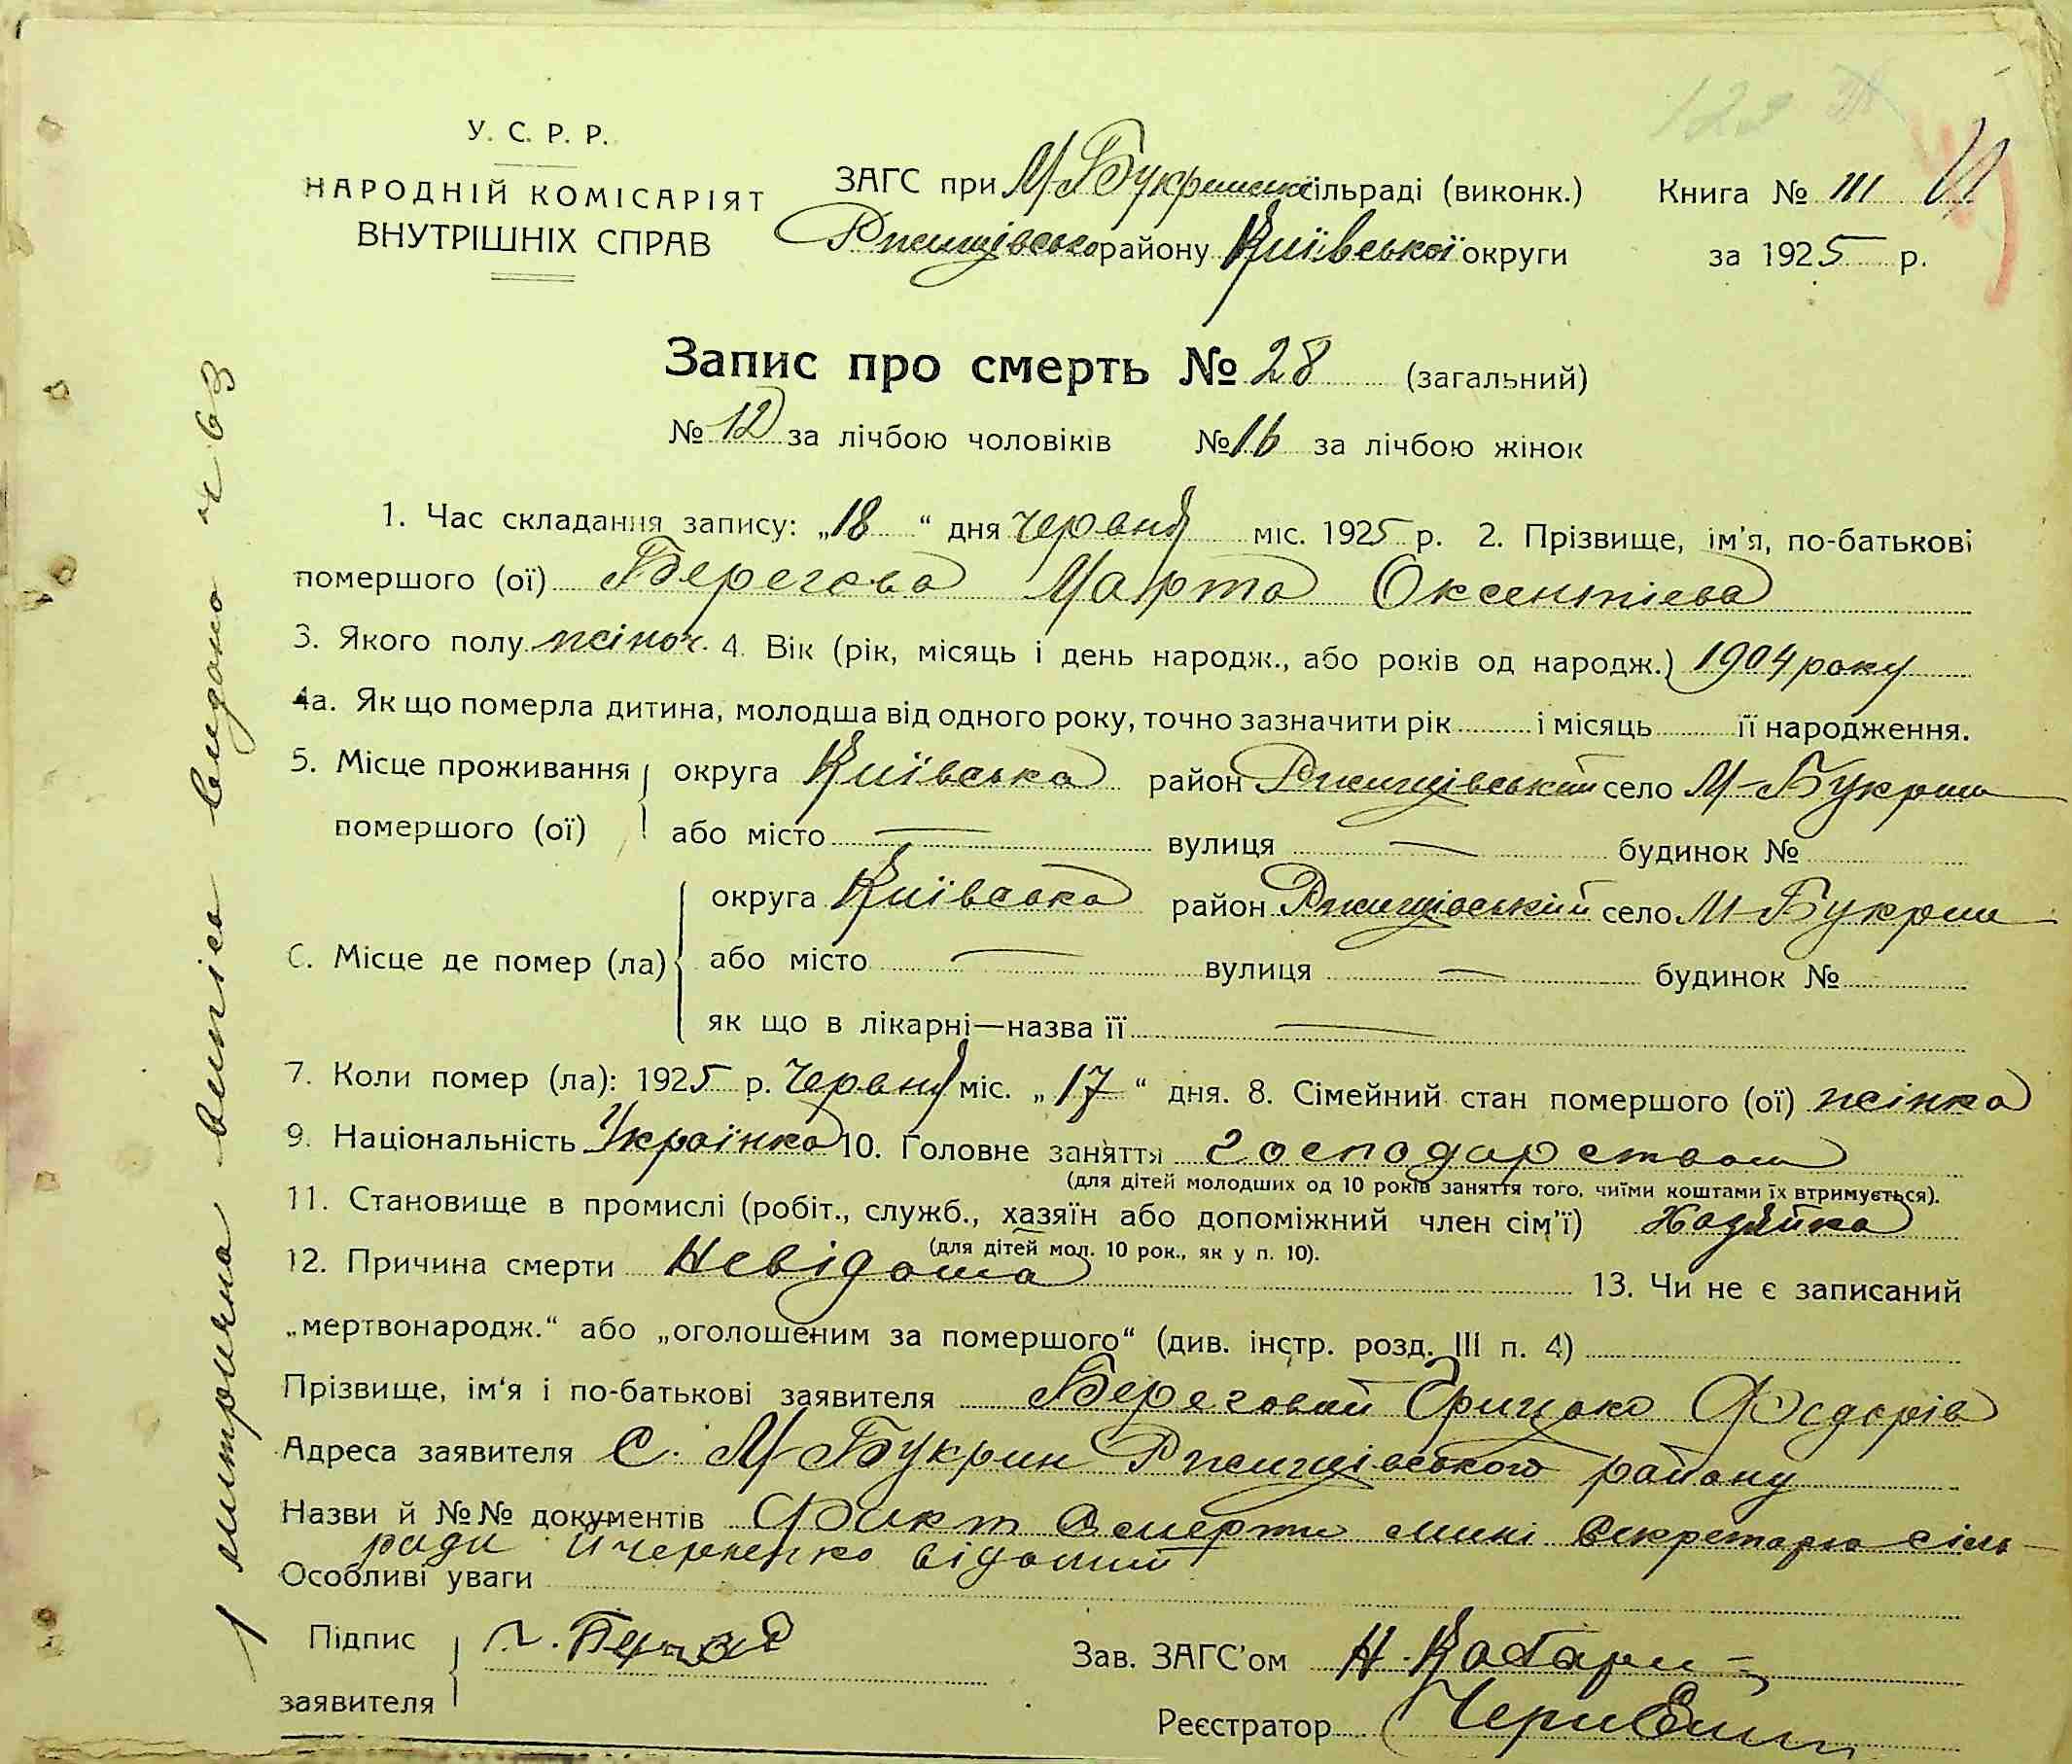 У. С. Р. Р.
НАРОДНІЙ КОМІСАРІЯТ
ВНУТРІШНІХ СПРАВ
ЗАГС при М-Букринській сільраді (виконк.)
Ржищівського району Київської округи
Книга № III
за 1925 р.
Запис про смерть № 28 (загальний)
№ 12 за лічбою чоловіків № 16 за лічбою жінок
1. Час складання запису: „18“ дня червня міс. 1925 р. 2. Прізвище, ім'я, по-батькові
помершого (ої) Берегова Марта Оксентієва
3. Якого полу жіноч. 4. Вік (рік, місяць і день народж., або років од народж.) 1904 року
4а. Як що померла дитина, молодша від одного року, точно зазначити рік і місяць її народження.
5. Місце проживання округа Київська район Ржищівський село М-Букрин
помершого (ої) або місто — вулиця — будинок №
округа Київська район Ржищівський село М-Букрин
6. Місце де помер (ла) або місто — вулиця — будинок №
як що в лікарні—назва її —
7. Коли помер (ла): 1925 р. червня міс. „17“ дня. 8. Сімейний стан помершого (ої) жінка
9. Національність Українка 10. Головне заняття господарством
(для дітей молодших од 10 років заняття того, чиїми коштами їх втримується).
11. Становище в промислі (робіт., служб., хазяїн або допоміжний член сім'ї) Хазяйка
(для дітей мол. 10 рок., як у п. 10).
12. Причина смерти Невідома 13. Чи не є записаний
„мертвонародж.“ або „оголошеним за помершого“ (див. інстр. розд. III п. 4)
Прізвище, ім'я і по-батькові заявителя Береговий Грицько Федорів
Адреса заявителя С. М-Букрин Ржищівського району
Назви й №№ документів Факт смерти мині секретарю сіль-
ради відомий
Особливі уваги
Підпис
заявителя
Зав. ЗАГС'ом
Реєстратор
1 митрична випісь видана ч 63